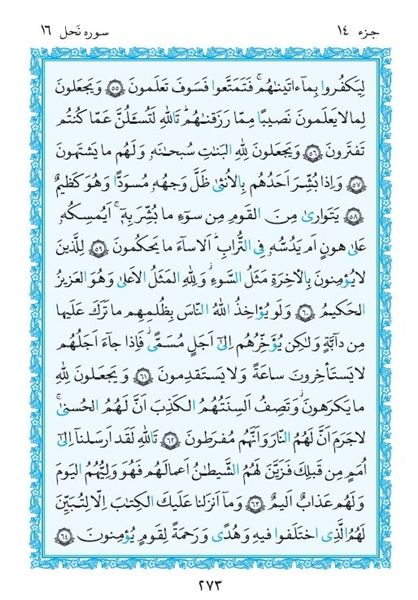 جزء ١٤
سوره نَحل ١٦
لِيَكفُروا بِما ءاتَينٰهُم ۚ فَتَمَتَّعوا فَسَوفَ تَعلَمونَ ﴿٥٥﴾ وَيَجعَلونَ
لِما لا يَعلَمونَ نَصيبًا مِمّا رَزَقنٰهُم ۗ تَاللهِ لَتُسـَٔلُنَّ عَمّا كُنتُم
تَفتَرونَ ﴿٥٦﴾ وَيَجعَلونَ لِلهِ البَنٰتِ سُبحٰنَهو وَلَهُم ما يَشتَهونَ
﴿٥٧﴾ وَاِذا بُشِّرَ اَحَدُهُم بِالاُنثىٰ ظَلَّ وَجهُهو مُسوَدًّا وَهُوَ كَظيمٌ
﴿٥٨﴾ يَتَوارىٰ مِنَ القَومِ مِن سوءِ ما بُشِّرَ بِهٖ ۚ اَيُمسِكُهو
عَلىٰ هونٍ اَم يَدُسُّهو فِى التُّرابِ ۗ اَلا ساءَ ما يَحكُمونَ ﴿٥٩﴾ لِلَّذينَ
لا يُؤمِنونَ بِالآخِرَةِ مَثَلُ السَّوءِ ۖ وَلِلهِ المَثَلُ الاَعلىٰ وَهُوَ العَزيزُ
الحَكيمُ ﴿٦٠﴾ وَلَو يُؤاخِذُ اللهُ النّاسَ بِظُلمِهِم ما تَرَكَ عَلَيها
مِن دابَّةٍ وَلٰكِن يُؤَخِّرُهُم اِلىٰ اَجَلٍ مُسَمًّى ۖ فَاِذا جاءَ اَجَلُهُم
لا يَستَأخِرونَ ساعَةً وَلا يَستَقدِمونَ ﴿٦١﴾ وَيَجعَلونَ لِلهِ
ما يَكرَهونَ ۚ وَتَصِفُ اَلسِنَتُهُمُ الكَذِبَ اَنَّ لَهُمُ الحُسنىٰ ۚ
لا جَرَمَ اَنَّ لَهُمُ النّارَ وَاَنَّهُم مُفرَطونَ ﴿٦٢﴾ تَاللهِ لَقَد اَرسَلنا اِلىٰ
اُمَمٍ مِن قَبلِكَ فَزَيَّنَ لَهُمُ الشَّيطٰنُ اَعمالَهُم فَهُوَ وَلِيُّهُمُ اليَومَ
وَلَهُم عَذابٌ اَليمٌ ﴿٦٣﴾ وَما اَنزَلنا عَلَيكَ الكِتٰبَ اِلّا لِتُبَيِّنَ
لَهُمُ الَّذِى اختَلَفوا فيهِ وَهُدًى وَرَحمَةً لِقَومٍ يُؤمِنونَ ﴿٦٤﴾
٢٧٣